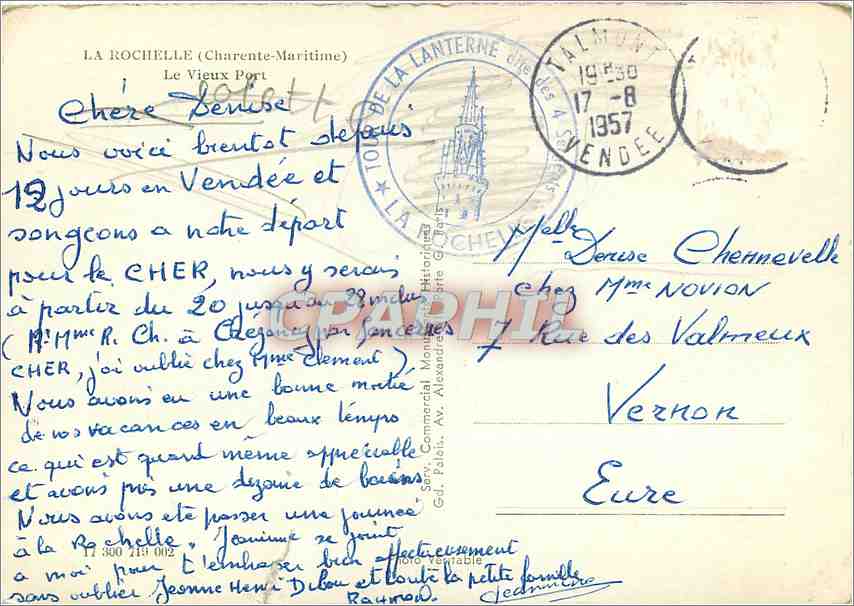 LA ROCHELLE (Charente-Maritime)
Le Vieux Port
Chère Denise
Nous voici bientot depuis
12 jours en Vendée et
songeons a notre départ
pour le CHER, nous y serons
à partir du 20 jusqu'au 28 inclus
(Mr Mme R. Ch. à Crézancy par Sancerres
CHER, j'ai oublié chez Mme Clement)
Nous avons eu une bonne moitié
de nos vacances en beaux temps
ce qui est quand même appréciable
et avons pris une dizaine de bains
Nous avons été passer une journée
à la Rochelle. Jeannine se joint
a moi pour t'embrasser bien affectueusement
sans oublier Jeanne Henri Dibou et toute la petite famille
Raymond. Jeannine
17 300 719 002
Photo Véritable
Serv. Commercial Monuments Historiques
Gd. Palais. Av. Alexandre Porte G Paris
TOUR DE LA LANTERNE dite des 4 Sergents
LA ROCHELLE
TALMONT
19H30
17 -8
1957
VENDEE
CPAPHIL
Melle Denise Chennevelle
chez Mme NOVION
7 Rue des Valmeux
Vernon
Eure